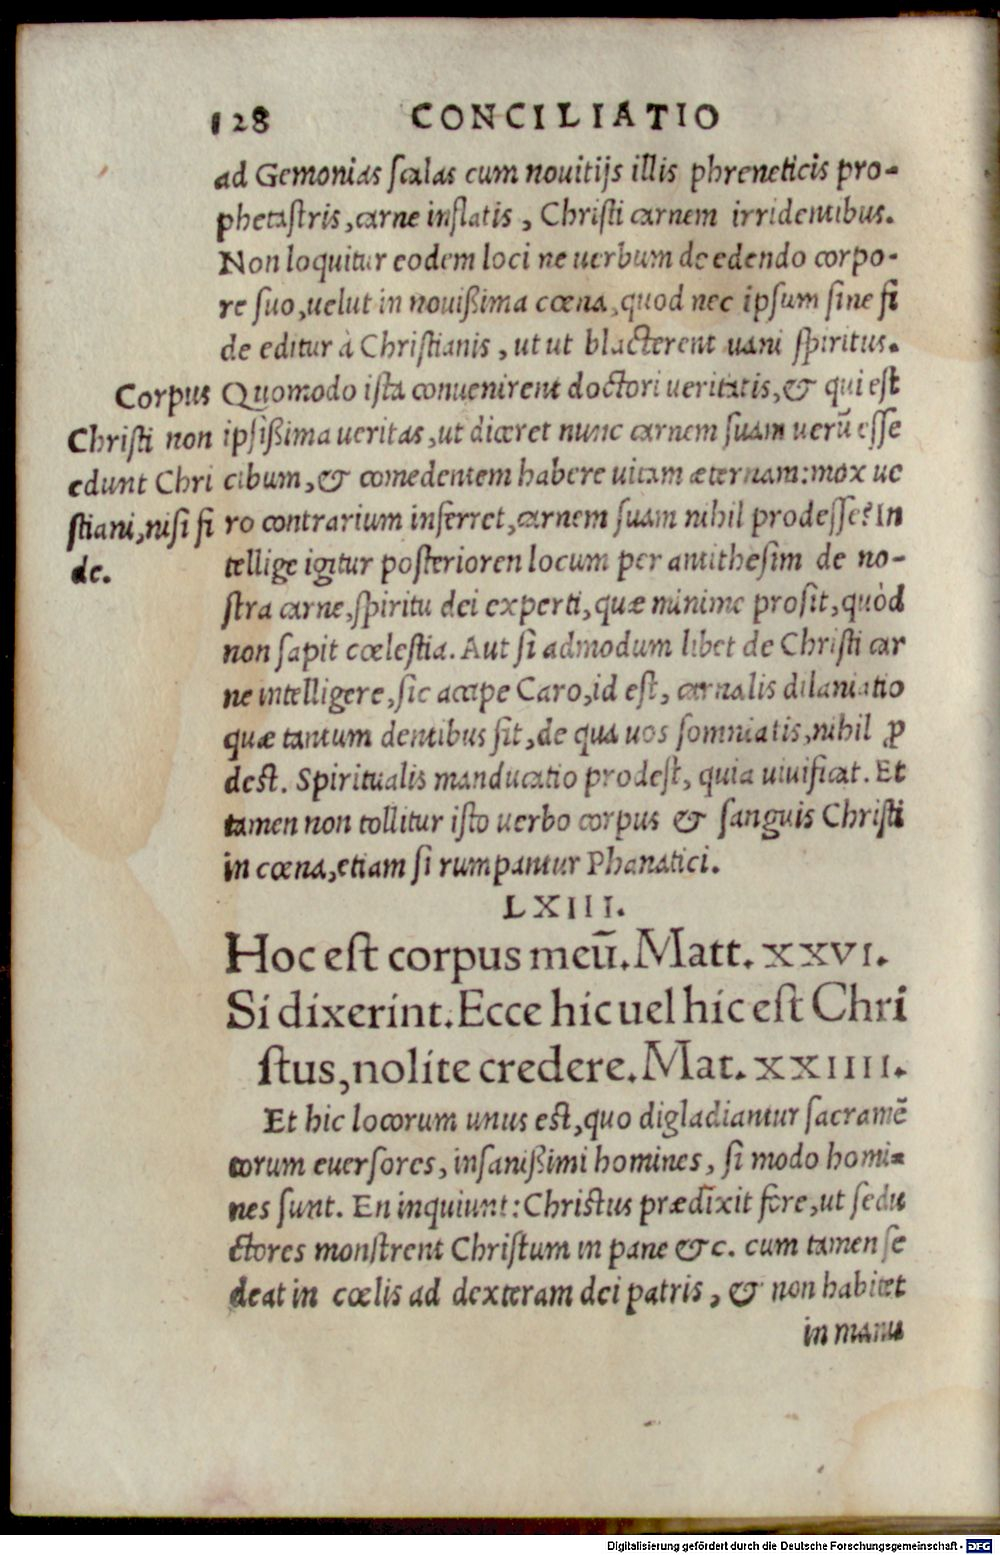 128 CONCILIATIO
ad Gemonias scalas cum nouitijs illis phreneticis pro-
phetastris, carne inflatis, Christi carnem irridentibus.
Non loquitur eodem loci ne uerbum de edendo corpo-
re suo, uelut in nouißima cœna, quod nec ipsum sine fi
de editur à Christianis, ut ut blacterent uani spiritus.
Quomodo ista conuenirent doctori ueritatis, & qui est
ipsißima ueritas, ut diceret nunc carnem suam uerū esse
cibum, & comedentem habere uitam æternam: mox ue
ro contrarium inferret, carnem suam nihil prodesse? In
tellige igitur posterioren locum per antithesim de no-
stra carne, spiritu dei experti, quæ minime prosit, quòd
non sapit cœlestia. Aut si admodum libet de Christi car
ne intelligere, sic accipe Caro, id est, carnalis dilaniatio
quæ tantum dentibus fit, de qua uos somniatis, nihil ꝓ
dest. Spiritualis manducatio prodest, quia uiuificat. Et
tamen non tollitur isto uerbo corpus & sanguis Christi
in cœna, etiam si rumpantur Phanatici.
Corpus
Christi non
edunt Chri
stiani, nisi fi
de.
LXIII.
Hoc est corpus meū. Matt. XXVI.
Si dixerint. Ecce hic uel hic est Chri
stus, nolite credere. Mat. XXIIII.
Et hic locorum unus est, quo digladiantur sacramē
torum euersores, insanißimi homines, si modo homi-
nes sunt. En inquiunt: Christus prædixit fore, ut sedu
ctores monstrent Christum in pane &c. cum tamen se
deat in cœlis ad dexteram dei patris, & non habitet
in manu
Digitalisierung gefördert durch die Deutsche Forschungsgemeinschaft - DFG